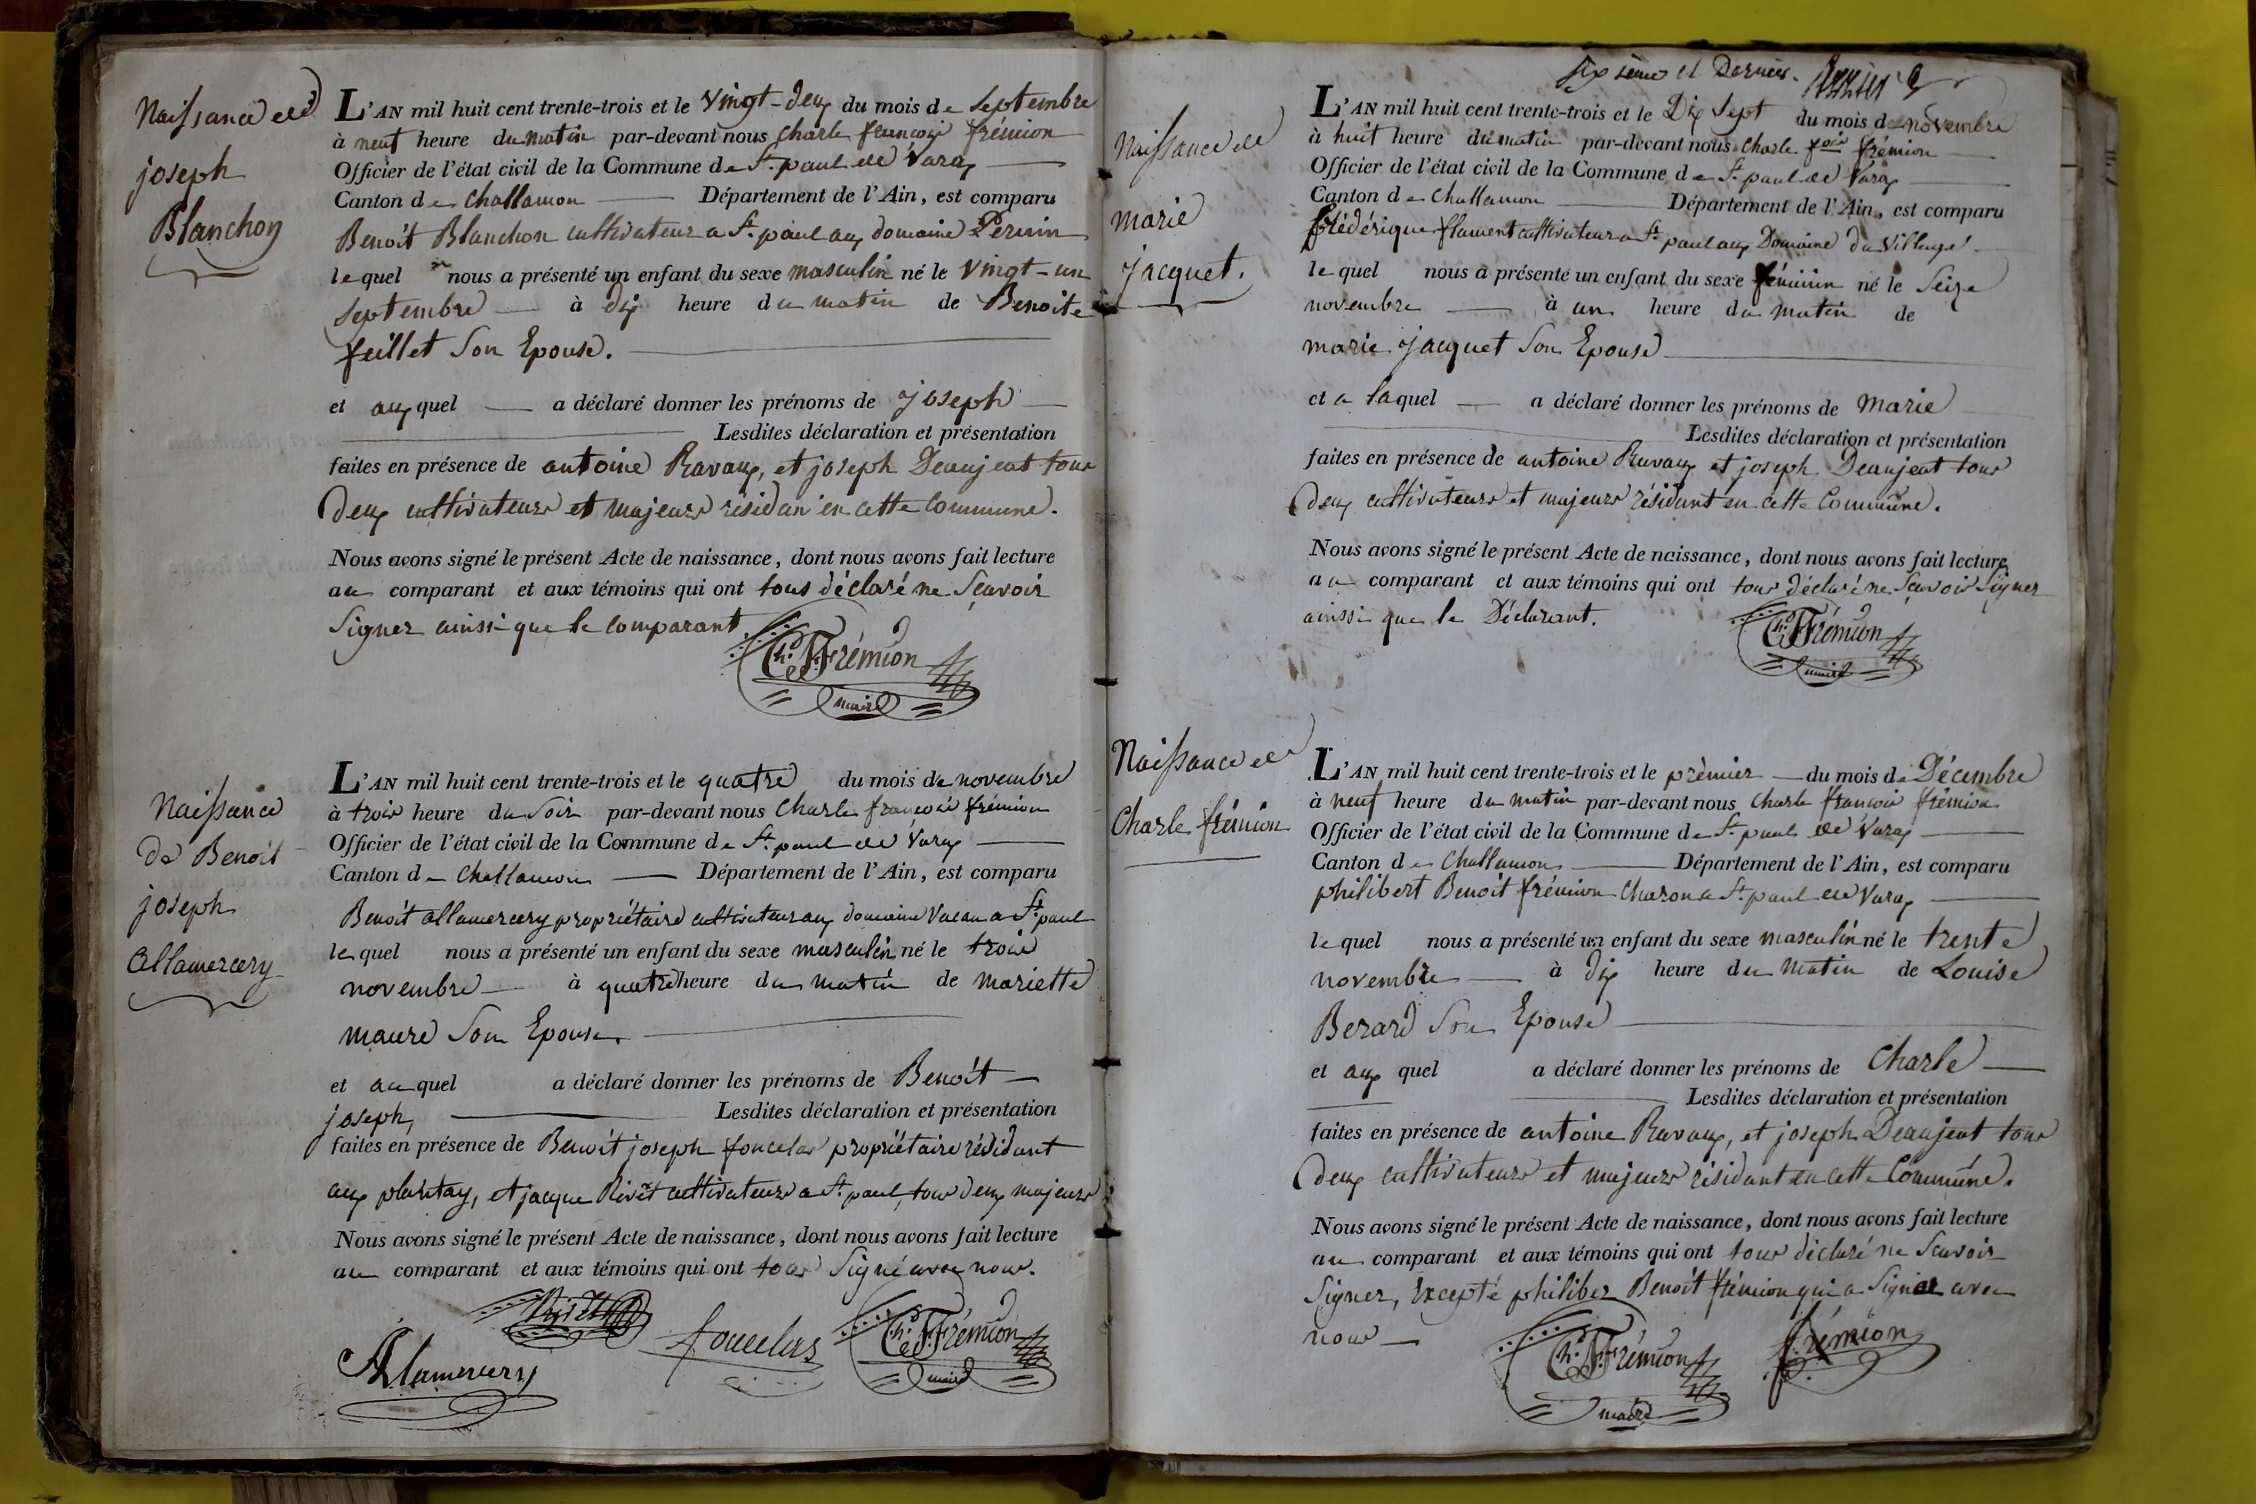 Naissance de
joseph
Blanchon
L'AN mil huit cent trente-trois et le vingt-deux du mois de septembre
à neuf heure du matin par-devant nous charle francois frémion
Officier de l'état civil de la Commune de St. paul de Varax
Canton de challamon Département de l'Ain, est comparu
Benoît Blanchon cultivateur a St. paul aux domaine Perrin
lequel nous a présenté un enfant du sexe masculin né le vingt-un
septembre à dix heure du matin de Benoite
feillet Son Epouse.
et aux quel a déclaré donner les prénoms de joseph
Lesdites déclaration et présentation
faites en présence de antoine Ravaux, et joseph Deaujeat tous
deux cultivateurs et majeurs résidan en cette Commune.
Nous avons signé le présent Acte de naissance, dont nous avons fait lecture
au comparant et aux témoins qui ont tous déclaré ne Scavoir
Signer ainssi que le comparant
Ch. F. Frémion
maire
Naissance
de Benoît
joseph
allamercery
L'AN mil huit cent trente-trois et le quatre du mois de novembre
à trois heure du Soir par-devant nous Charle francois frémion
Officier de l'état civil de la Commune de St. paul de Varax
Canton de Challamon Département de l'Ain, est comparu
Benoît allamercery propriétaire cultivateur aux domaine a St. paul
lequel nous a présenté un enfant du sexe masculin né le trois
novembre à quatre heure du matin de mariette
maure Son Epouse.
et au quel a déclaré donner les prénoms de Benoît
joseph, Lesdites déclaration et présentation
faites en présence de Benoît joseph foucelas propriétaire résidant
aux plantay, et jacque Rivët cultivateurs a St. paul, tous deux majeurs
Nous avons signé le présent Acte de naissance, dont nous avons fait lecture
au comparant et aux témoins qui ont tous Signé avec nous.
Allamercery
foucelas
Ch. F. Frémion
maire
Sixième et Dernier.
Naissance de
marie
jacquet.
L'AN mil huit cent trente-trois et le Dix Sept du mois de novembre
à huit heure du matin par-devant nous Charle fois frémion
Officier de l'état civil de la Commune de St. paul de Varax
Canton de Challamon Département de l'Ain, est comparu
frédérique flament cultivateur a St. paul aux Domaine du Village
lequel nous a présenté un enfant du sexe féminin né le Seize
novembre à un heure du matin de
marie jacquet Son Epouse
et a laquel a déclaré donner les prénoms de marie
Lesdites déclaration et présentation
faites en présence de antoine Ravaux et joseph Deaujeat tous
deux cultivateurs et majeurs résidant en cette Commune.
Nous avons signé le présent Acte de naissance, dont nous avons fait lecture
au comparant et aux témoins qui ont tous déclaré ne Scavoir Signer
ainssi que le Déclarant.
Ch. F. Frémion
maire
Naissance de
Charle frémion
L'AN mil huit cent trente-trois et le prémier du mois de Décembre
à neuf heure du matin par-devant nous Charle francois frémion
Officier de l'état civil de la Commune de St. paul de Varax
Canton de Challamon Département de l'Ain, est comparu
philibert Benoit frémion Charon a St. paul de Varax
lequel nous a présenté un enfant du sexe masculin né le trente
novembre à dix heure du matin de Louise
Berard Son Epouse
et aux quel a déclaré donner les prénoms de Charle
Lesdites déclaration et présentation
faites en présence de antoine Ravaux, et joseph Deaujeat tous
deux cultivateurs et majeurs résidant en cette Commune.
Nous avons signé le présent Acte de naissance, dont nous avons fait lecture
au comparant et aux témoins qui ont tous déclaré ne Scavoir
Signer, Excepté philiber Benoît frémion qui a Signer avec
nous
Ch. F. Frémion
maire
frémion